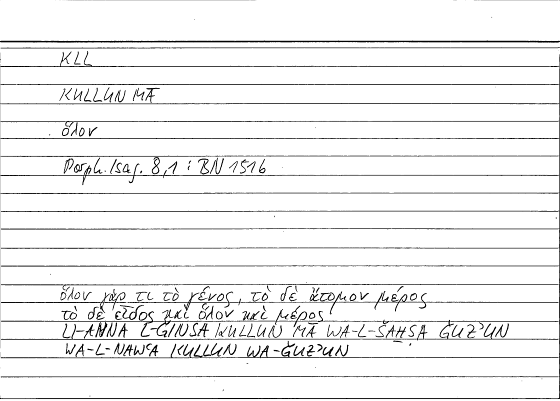 KLL
KULLUN MĀ
ὅλον
Porph. Isag. 8,1 : BN 1516
ὅλον γάρ τι τὸ γένος, τὸ δὲ ἄτομον μέρος
τὸ δὲ εἶδος καὶ ὅλον καὶ μέρος
LI-ANNA L-ǦINSA KULLUN MĀ WA-L-ŠAḪṢA ǦUZʾUN
WA-L-NAWʿA KULLUN WA-ǦUZʾUN